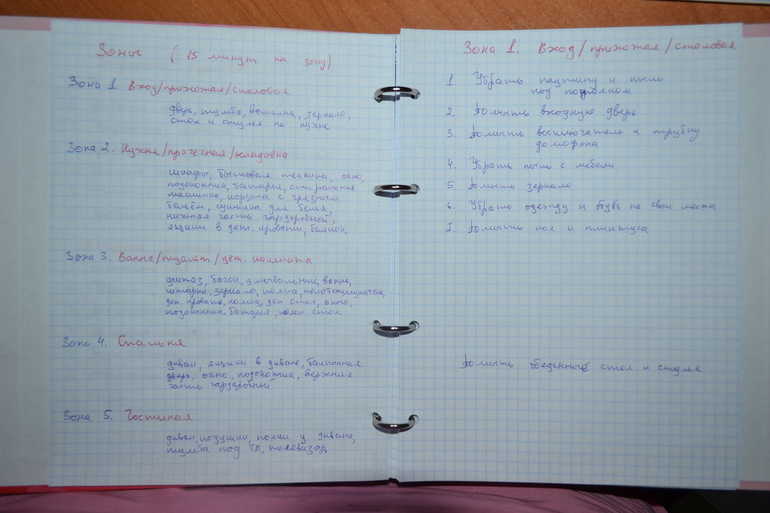 Зоны (15 минут на зону)
Зона 1. Вход/прихожая/столовая
дверь, тумба, вешалка, зеркало,
стол и стулья на кухне
Зона 2. Кухня/прачечная/кладовка
шкафы, бытовая техника, окно,
подоконник, батарея, стиральная
машина, корзина с грязным
бельём, сушилка для белья,
нижняя часть гардеробной,
ящики в дет. кровати, балкон
Зона 3. Ванна/туалет/дет. комната
унитаз, бачок, умывальник, ванна,
шторка, зеркало, полка, полотенцесушитель,
дет. кровать, комод, дет. стол, окно,
подоконник, батарея, комп стол
Зона 4. Спальня
диван, ящики в диване, балконная
дверь, окно, подоконник, верхняя
часть гардеробной
Зона 5. Гостиная
диван, подушки, полки у дивана,
тумба под ТВ, телевизор
Зона 1. Вход/прихожая/столовая
1. Убрать паутину и пыль
под потолком
2. Помыть входную дверь
3. Помыть выключатель и трубку
домофона
4. Убрать пыль с мебели
5. Помыть зеркало
6. Убрать одежду и обувь на свои места
7. Помыть пол и плинтуса
Помыть обеденный стол и стулья